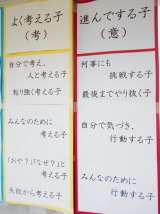 よく考える子
(考)
自分で考え、
人と考える子
粘り強く考える子
みんなのために
考える子
「おや?」「なぜ?」と
考える子
失敗から考える子
進んでする子
(意)
何事にも
挑戦する子
最後までやり抜く子
自分で気づき、
行動する子
みんなのために
行動する子